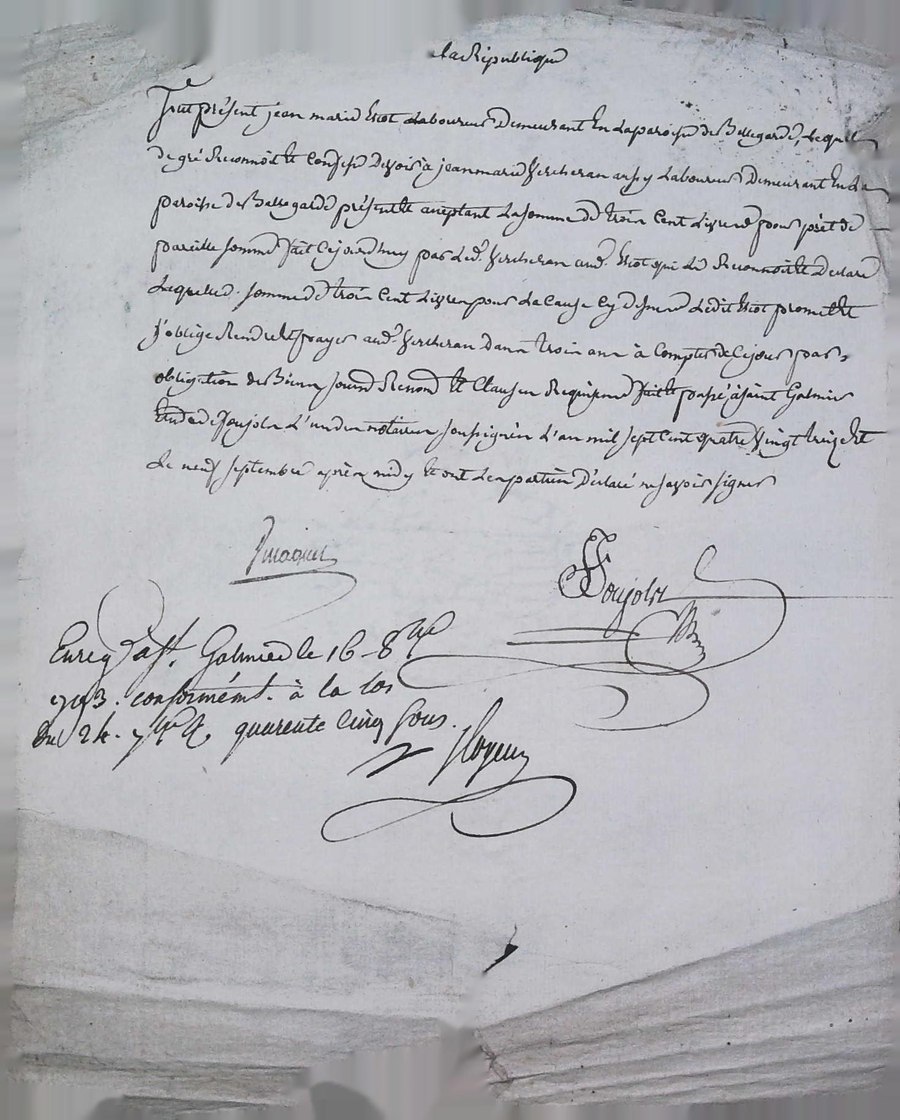 la République
fut présent jean marie Viot Laboureur Demeurant En La paroisse de Bellegarde, Lequel
de gré Reconnoit Et Confesse Devoir à jean marie Vercheran aussy Laboureur Demeurant En La
paroisse de Bellegarde présent Et acceptant La somme de trois Cent Livres pour prêt de
pareille somme fait Cejourdhuy par Led. Vercheran aud. Viot qui Le Reconnoit Et Declare
Laquelle d. somme de trois Cent Livres pour La Cause Cy Dessus Ledit Viot promet Et
s'oblige Rendre Et payer aud. Vercheran Dans trois ans à Compter de Ce jour par
obligation de Biens soum Renon Et Clauses Requises fait Et passé à saint Galmier
Etude de Poujols L'un des notaires soussignés L'an mil sept Cent quatre Vingt treize Et
Le neuf septembre après midy Et ont Les parties Déclaré ne savoir signer
Poujols
Enreg. à St. Galmier le 16 8bre
1793. conformémt. à la loi
du 24. 7bre quarente cinq sous.